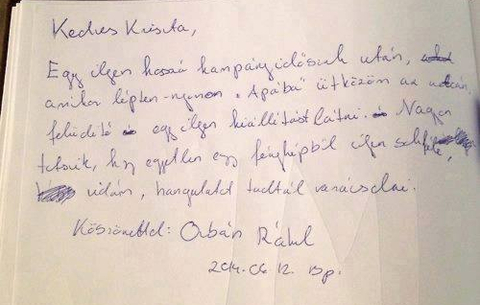 Kedves Kriszta,
Egy ilyen hosszú kampányidőszak után,
amikor lépten-nyomon "Apába" ütközöm az utcán,
felüdítő egy ilyen kiállítást látni. Nagyon
tetszik, hogy egyetlen egy fényképből ilyen sokféle,
vidám, hangulatot tudtál varázsolni.
Köszönettel: Orbán Ráhel
2014.06.12. Bp.